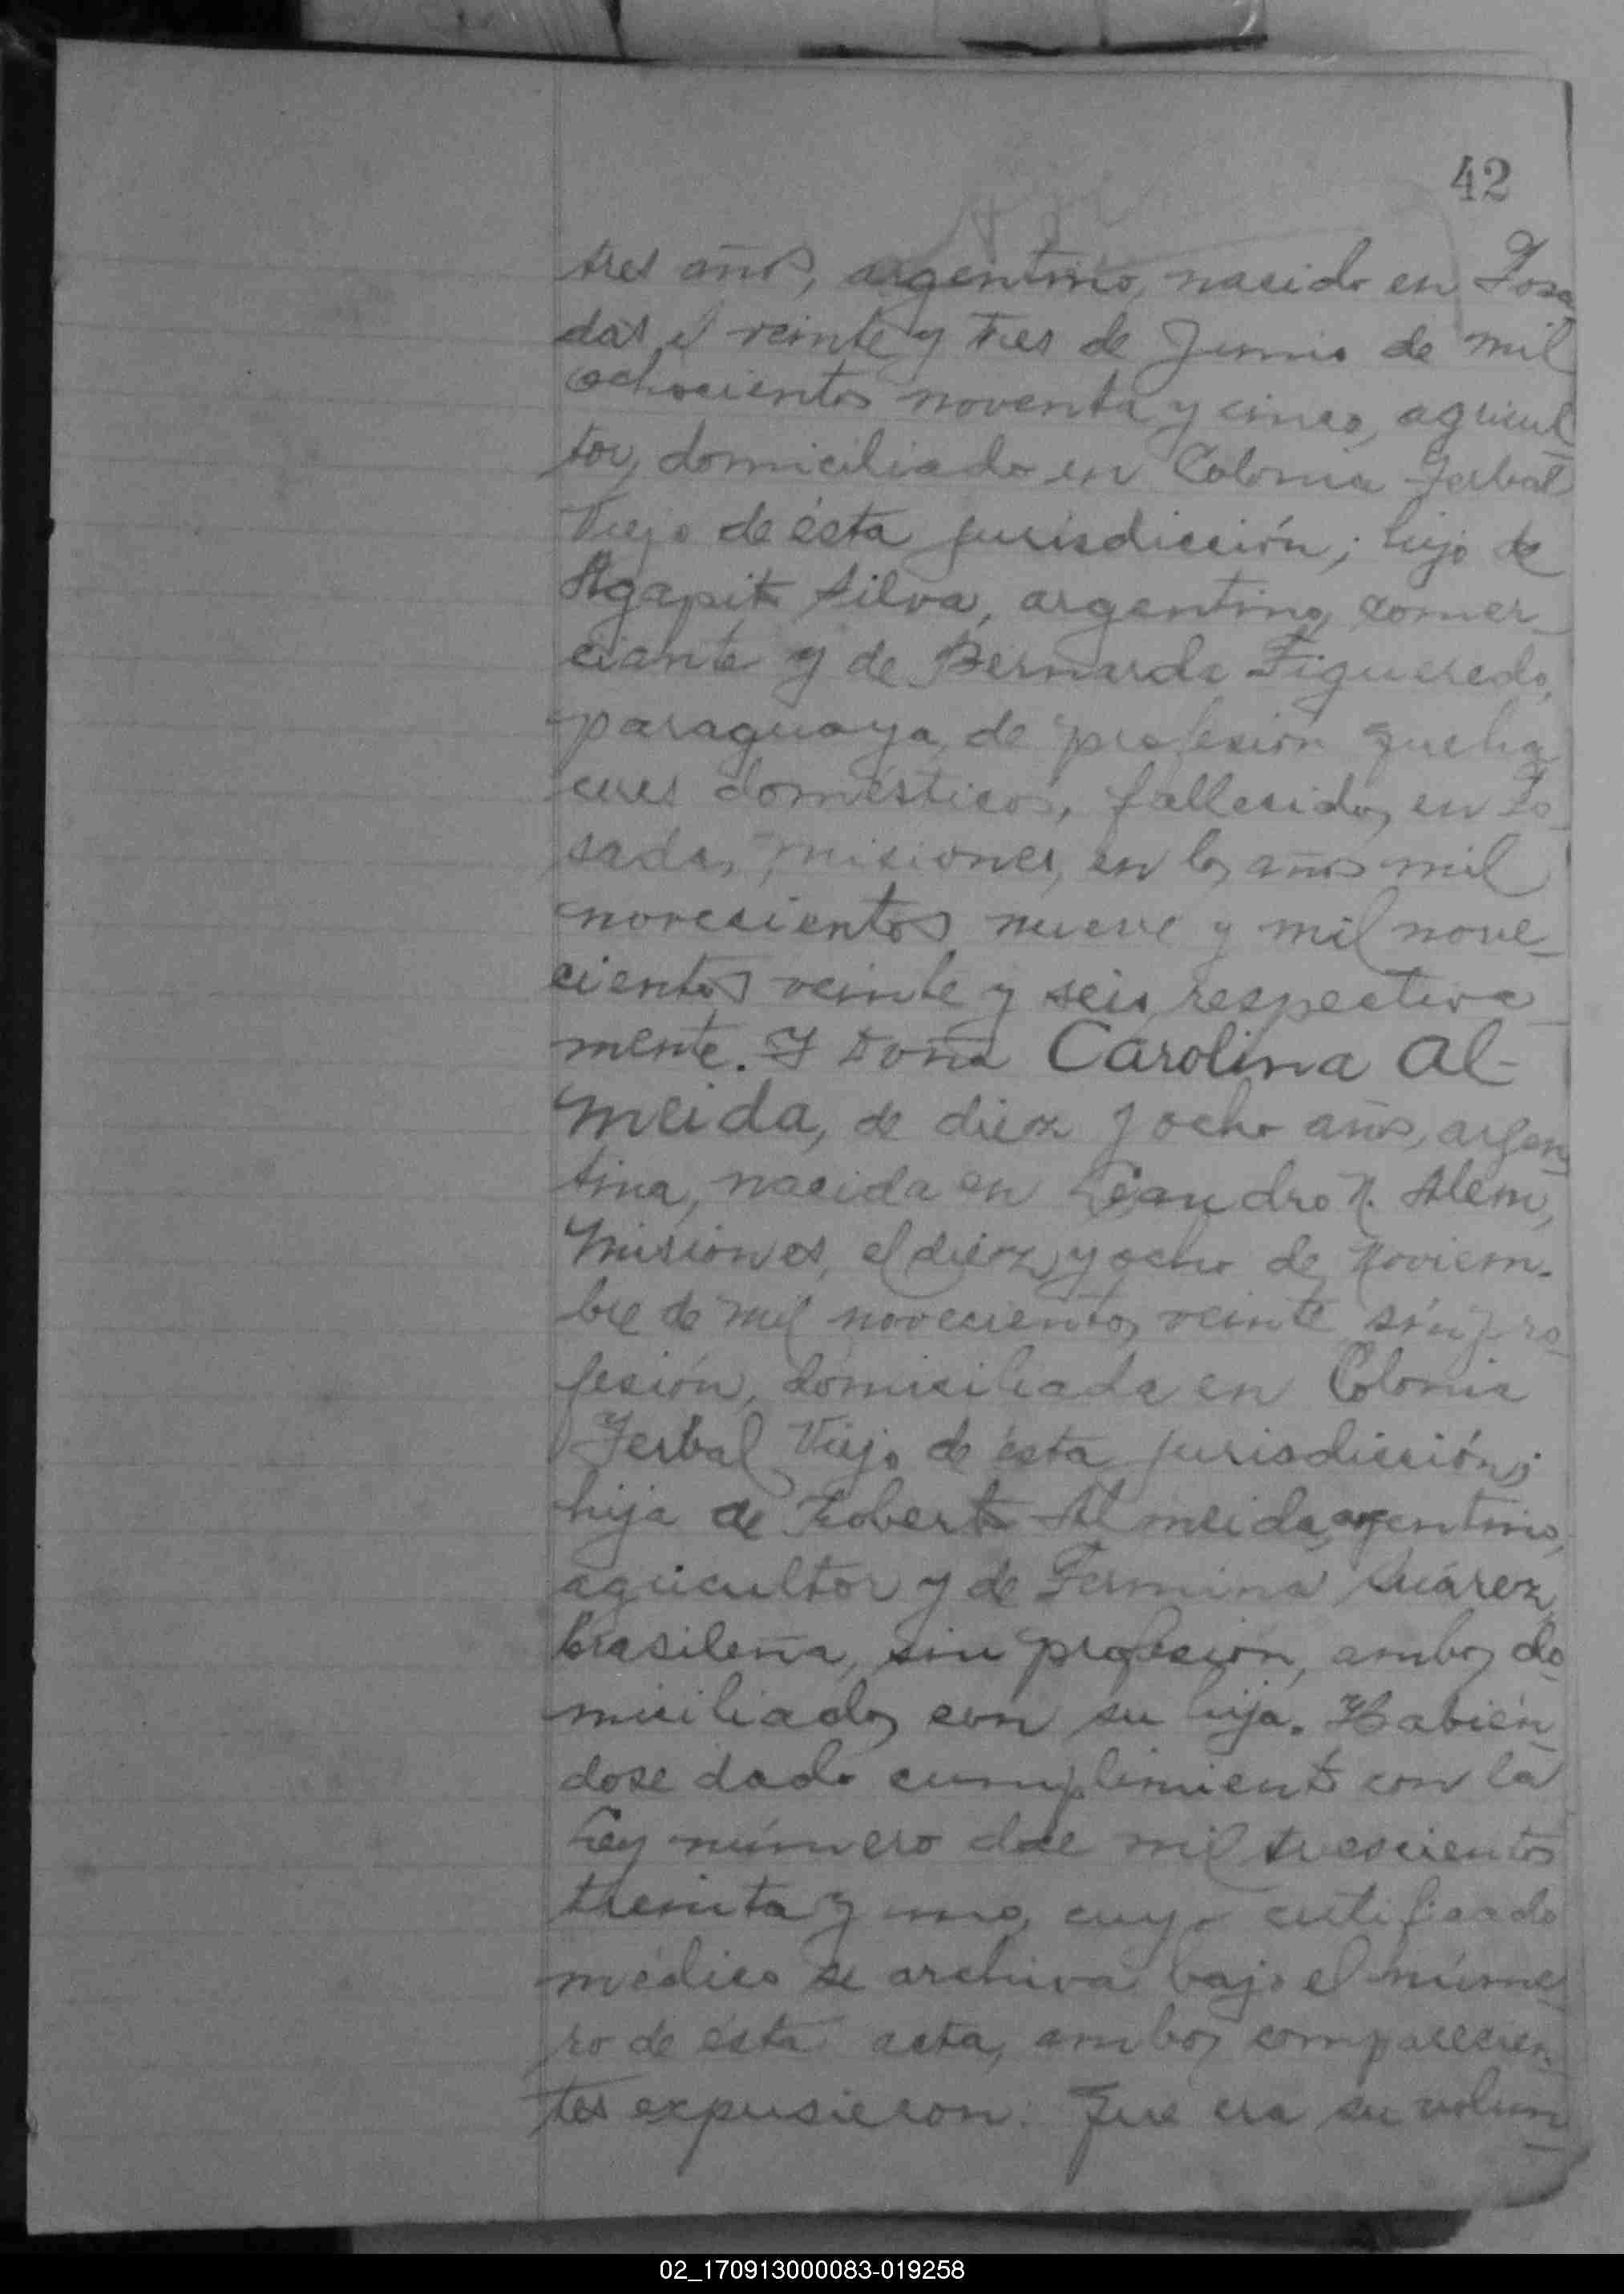 42
tres años, argentino, nacido en Posa
das el veinte y tres de Junio de mil
ochocientos noventa y cinco, agricul
tor, domiciliado en Colonia Yerbal
Viejo de ésta jurisdicción; hijo de
Agapito Silva, argentino, comer_
ciante y de Bernarda Figueredo,
paraguaya, de profesión queha
ceres domésticos, fallecidos en Po_
sadas, Misiones, en los años mil
novecientos nueve y mil nove_
cientos veinte y seis respectiva_
mente. Y Doña Carolina Al-
meida, de diez y ocho años, argen_
tina, nacida en Leandro N. Alem,
Misiones, el diez y ocho de Noviem-
bre de mil novecientos veinte, sin pro_
fesión, domiciliada en Colonia
Yerbal Viejo de ésta jurisdicción;
hija de Roberto Almeida, argentino,
agricultor y de Fermina Suárez,
brasileña, sin profesión, ambos do_
miciliados con su hija. Habién_
dose dado cumplimiento con la
Ley número doce mil trescientos
treinta y uno, cuyo certificado
médico se archiva bajo el núme_
ro de ésta acta, ambos comparecien_
tes expusieron: Que era su volun_
02_170913000083-019258